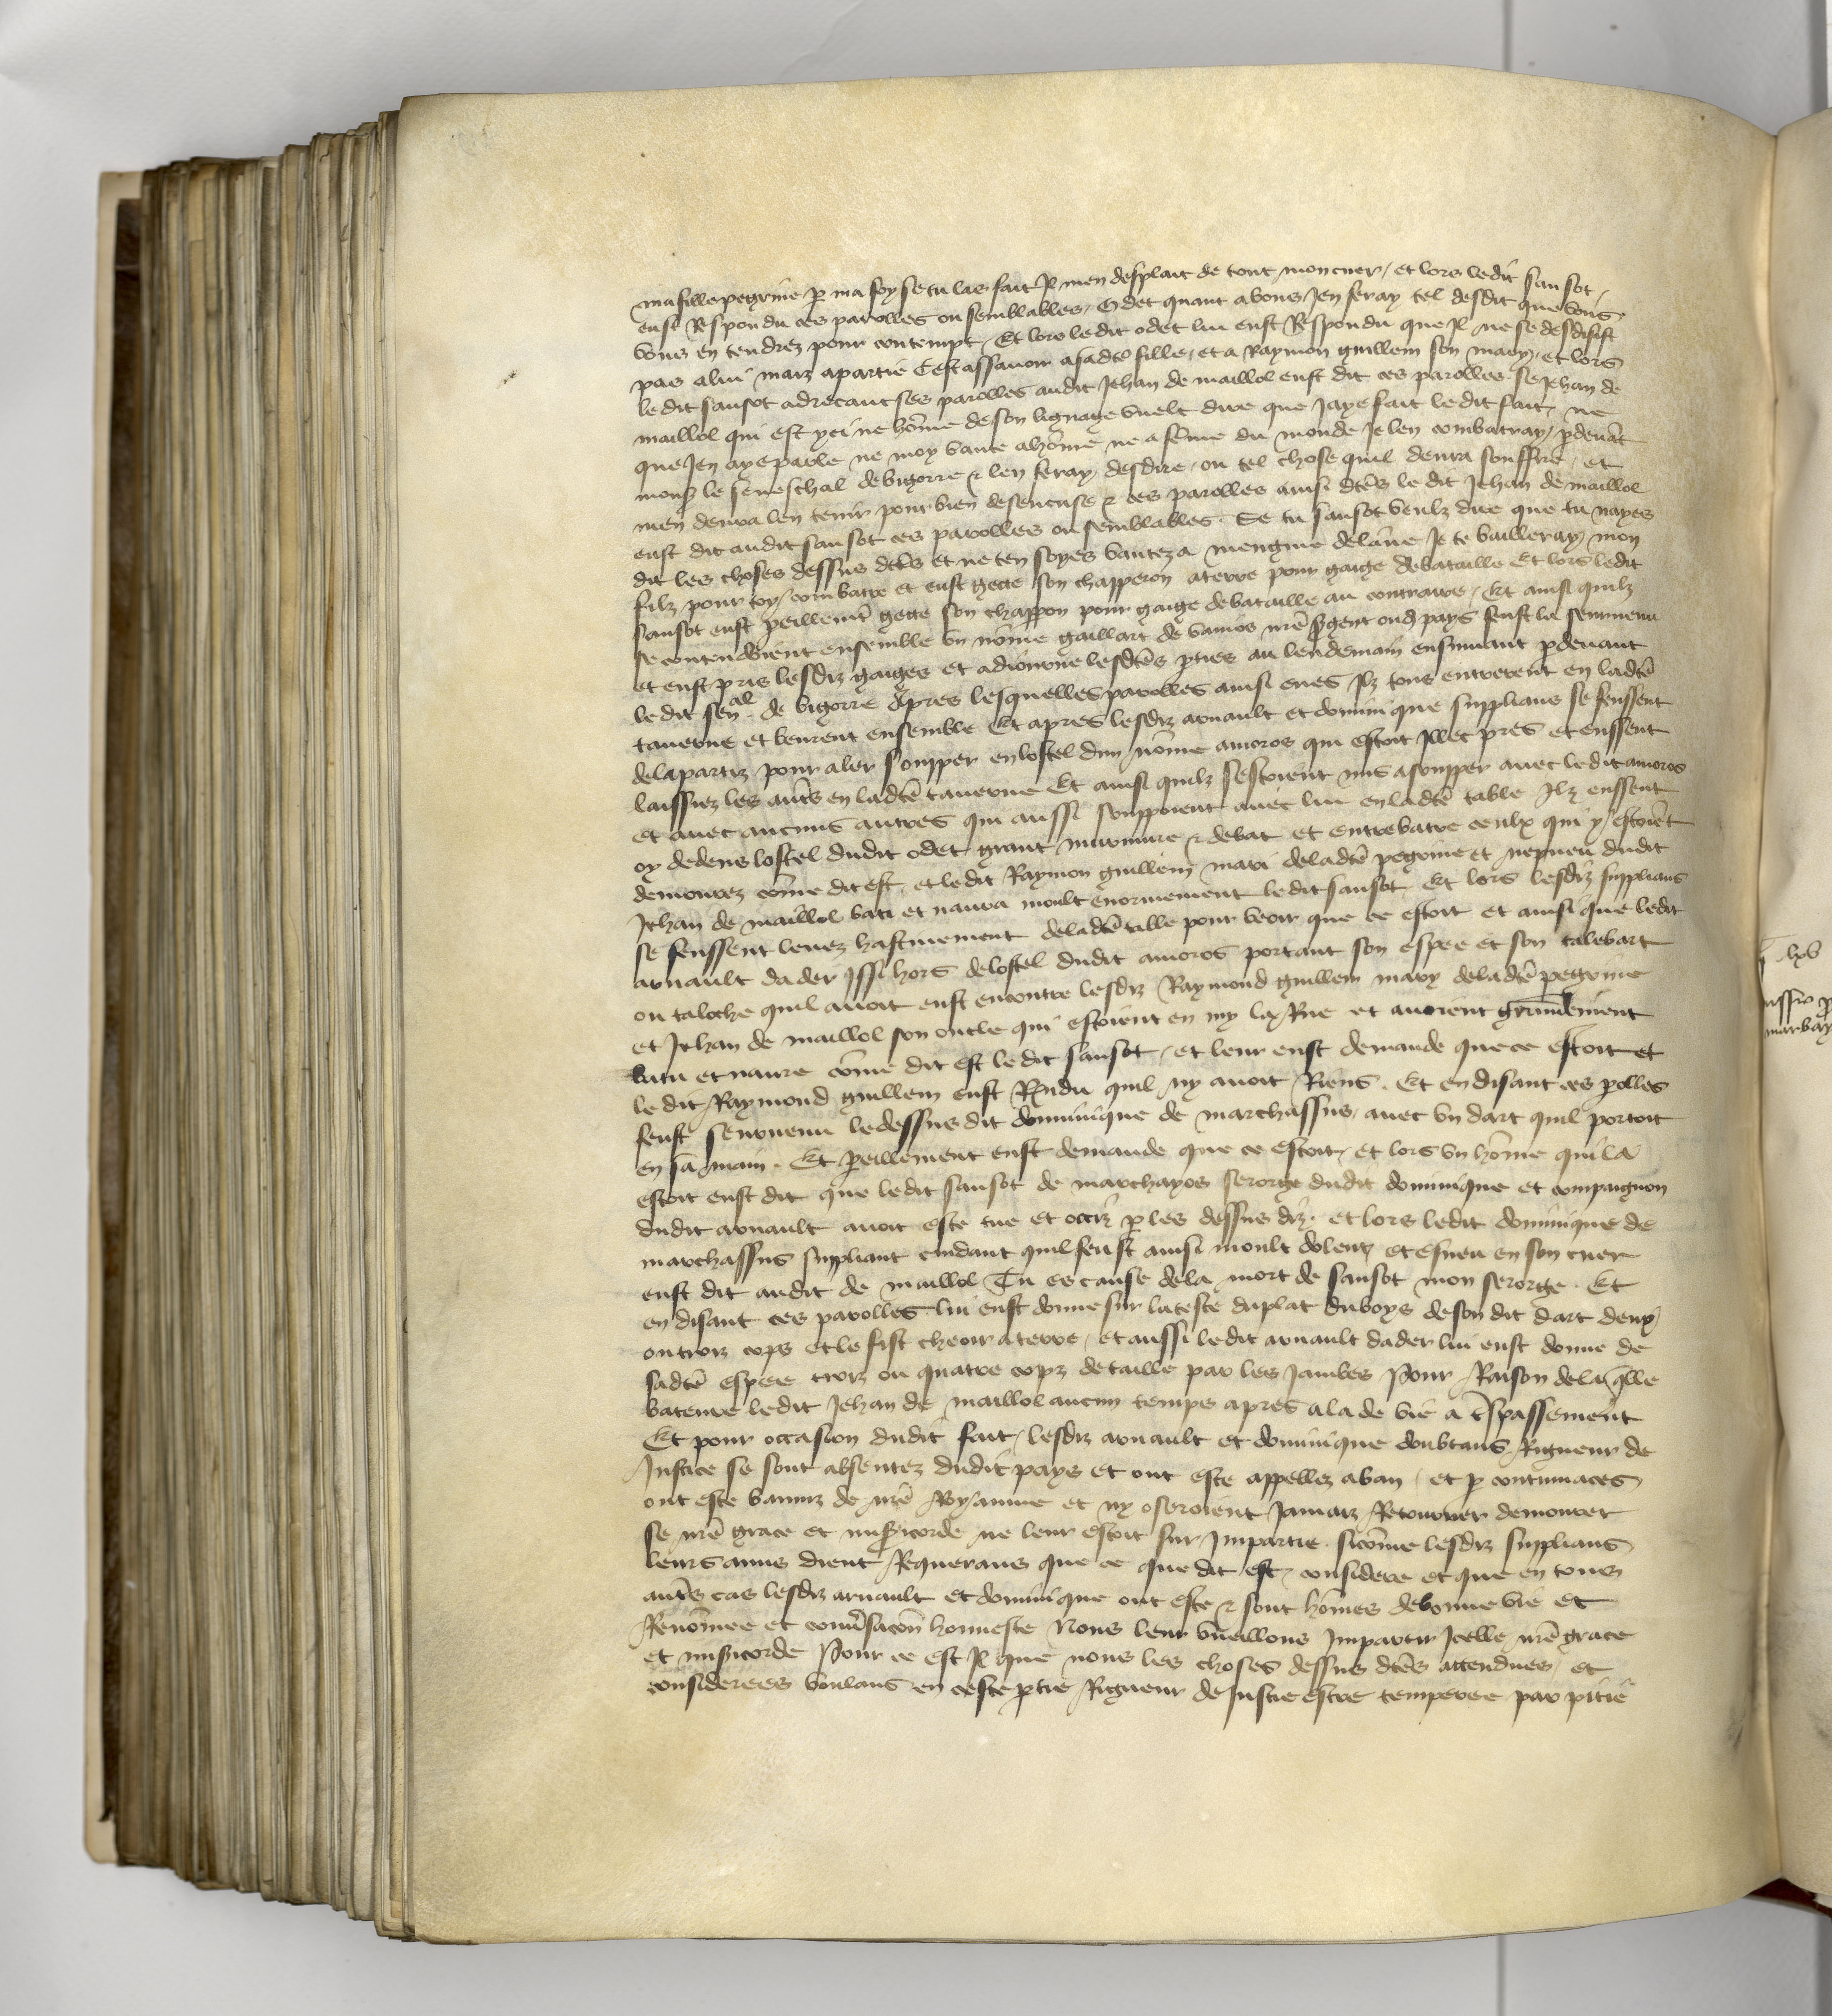 ma fille pegrine p ma foy se tu las fait Jl men desplait de tout mon cuer / et lors ledit sansot
eust Respondu ces parolles ou semblables / Odet quant a vous Jen feray tel desdit que vous
vous en tendrez pour content / Et lors ledit odet lui eust Respondu que Jl ne se desdisist
pas a lui maiz a partie Cest assavoir a sadte fille / et a Raymon guillem son mary / et lors
ledit sansot adrecant ses parolles audit Jehan de maillol eust dit ces parolles Se Jehan de
maillol qui est yci ne home de son lignage vuelt dire que Jaye fait ledit fait / ne
que Jen aye parle ne moy vante a home ne a feme du monde Je len combatray / pdevat
mons le seneschal de bigorre & len feray desdire / ou tel chose quil devra souffire / et
men devra len tenir pour bien desencuse & ces parolles ainsi dtes ledit Jehan de maillol
eust dit audit sansot ces parolles ou semblables · Se tu sansot veulz dire que tu nayes
dit les choses dessus dtes et ne ten soyes vantez a mengine delane Je te bailleray mon
filz pour toy combatre et eust gette son chapperon a terre pour gaige de bataille Et lors ledit
sansot eust peillemt gette son chappon pour gaige de bataille au contraire / Et ainsi quilz
se contendoient ensemble un nome gaillart de vamos nre sgent oud pays feust la seurvenu
et eust pris lesdiz gaiges et adiourne lesdtes pties au lendemain ensuivant pdevant
ledit senal de bigorre Apres lesquelles parolles ainsi eues Jlz tous entrerent en ladte
taverne et beurent ensemble Et apres lesdiz arnault et dominique supplians se feussent
dela partiz pour aler soupper en lostel dun nome amoros qui estoit Jllec pres et eussent
laissiez les auts en ladte taverne Et ainsi quilz sestoient mis a soupper avec ledit amoros
et avec aucuns autres qui aussi souppoient avec lui en ladte table Jlz eussent
oy dedens lostel dudit odet grant murmure & debat et entrebatre ceulx qui y estoiet
demourez come dit est / et ledit Raymon guillem mari de ladte pegrine et nepveu dudit
Jehan de maillol bati et navra moult enormement ledit sansot Et lors lesdiz supplians
se feussent levez hastivement de ladte table pour veoir que ce estoit et ainsi que ledit
arnault dader Jssi hors de lostel dudit amoros portant son espee et son talebart
ou taloche quil avoit eust encontre lesdiz Raymond guillem mary de ladte pegrine
et Jehan de maillol son oncle qui estoient en my la Rue et avoient grandement
batu et navre come dit est ledit sansot / et leur eust demande que ce estoit et
ledit Raymond guillem eust Rndu quil ny avoit Riens . Et en disant ces polles
feust seurvenu le dessus dit dominique de marchassus / avec un dart quil portoit
en sa main . Et peillement eust demande que ce estoit / et lors un home qui la
estoit eust dit que ledit sansot de marchayos serorge dudit dominique et compaignon
dudit arnault avoit este tue et occiz p les dessus diz · et lors ledit dominique de
marchassus suppliant cuidant quil feust ainsi moult dolent et esmeu en son cuer
eust dit audit de maillol Tu es cause dela mort de sansot mon serorge . Et
en disant ces parolles lui eust donne sur la teste du plat du boys de son dit dart deux
ou troiz cops et le fist cheoir a terre / et aussi ledit arnault dader lui eust donne de
sadte espee troiz ou quatre copz de taille par les Jambes Pour Raison dela qlle
bateure ledit Jehan de maillol aucun temps apres ala de vie a tspassement
Et pour occasion dudit fait / lesdiz arnault et dominique doubtans Rigueur de
Justice se sont absentez dudit pays et ont este appellez a ban / et p contumaces
ont este banniz de nre Royaume et ny oseroient Jamaiz Retourner demourer
se nre grace et misicorde ne leur estoit sur Jmpartie · sicome lesdiz supplians
leurs amis dient Requerans que ce que dit est / considere et que en tous
auts cas lesdiz arnault et dominique ont este & sont homes de bonne vie et
Renomee et conversacon honneste Nous leur vueillons Jmpartir Jcelle nre grace
et misicorde Pour ce est Jl que nous les choses dessus dtes attendues / et
considerees voulans en ceste ptie Rigueur de Justice estre temperee par pitie